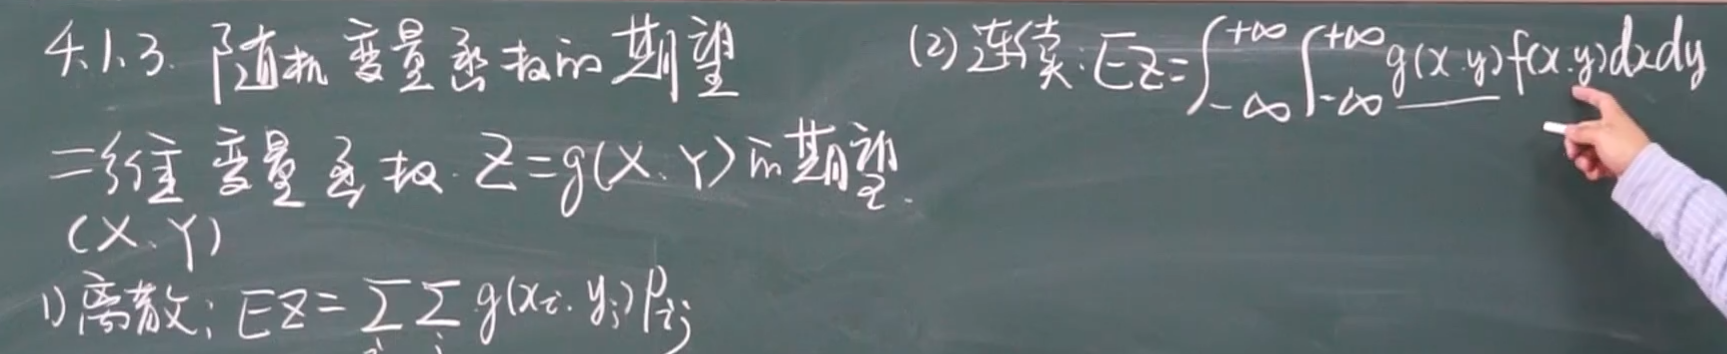 4.1.3. 随机变量函数的期望
二维变量函数 Z=g(X.Y)的期望.
(X.Y)
1)离散: EZ=∑∑g(xi.yj)Pij
i j
(2)连续: EZ=∫_{-∞}^{+∞}∫_{-∞}^{+∞}g(x.y)f(x.y)dxdy